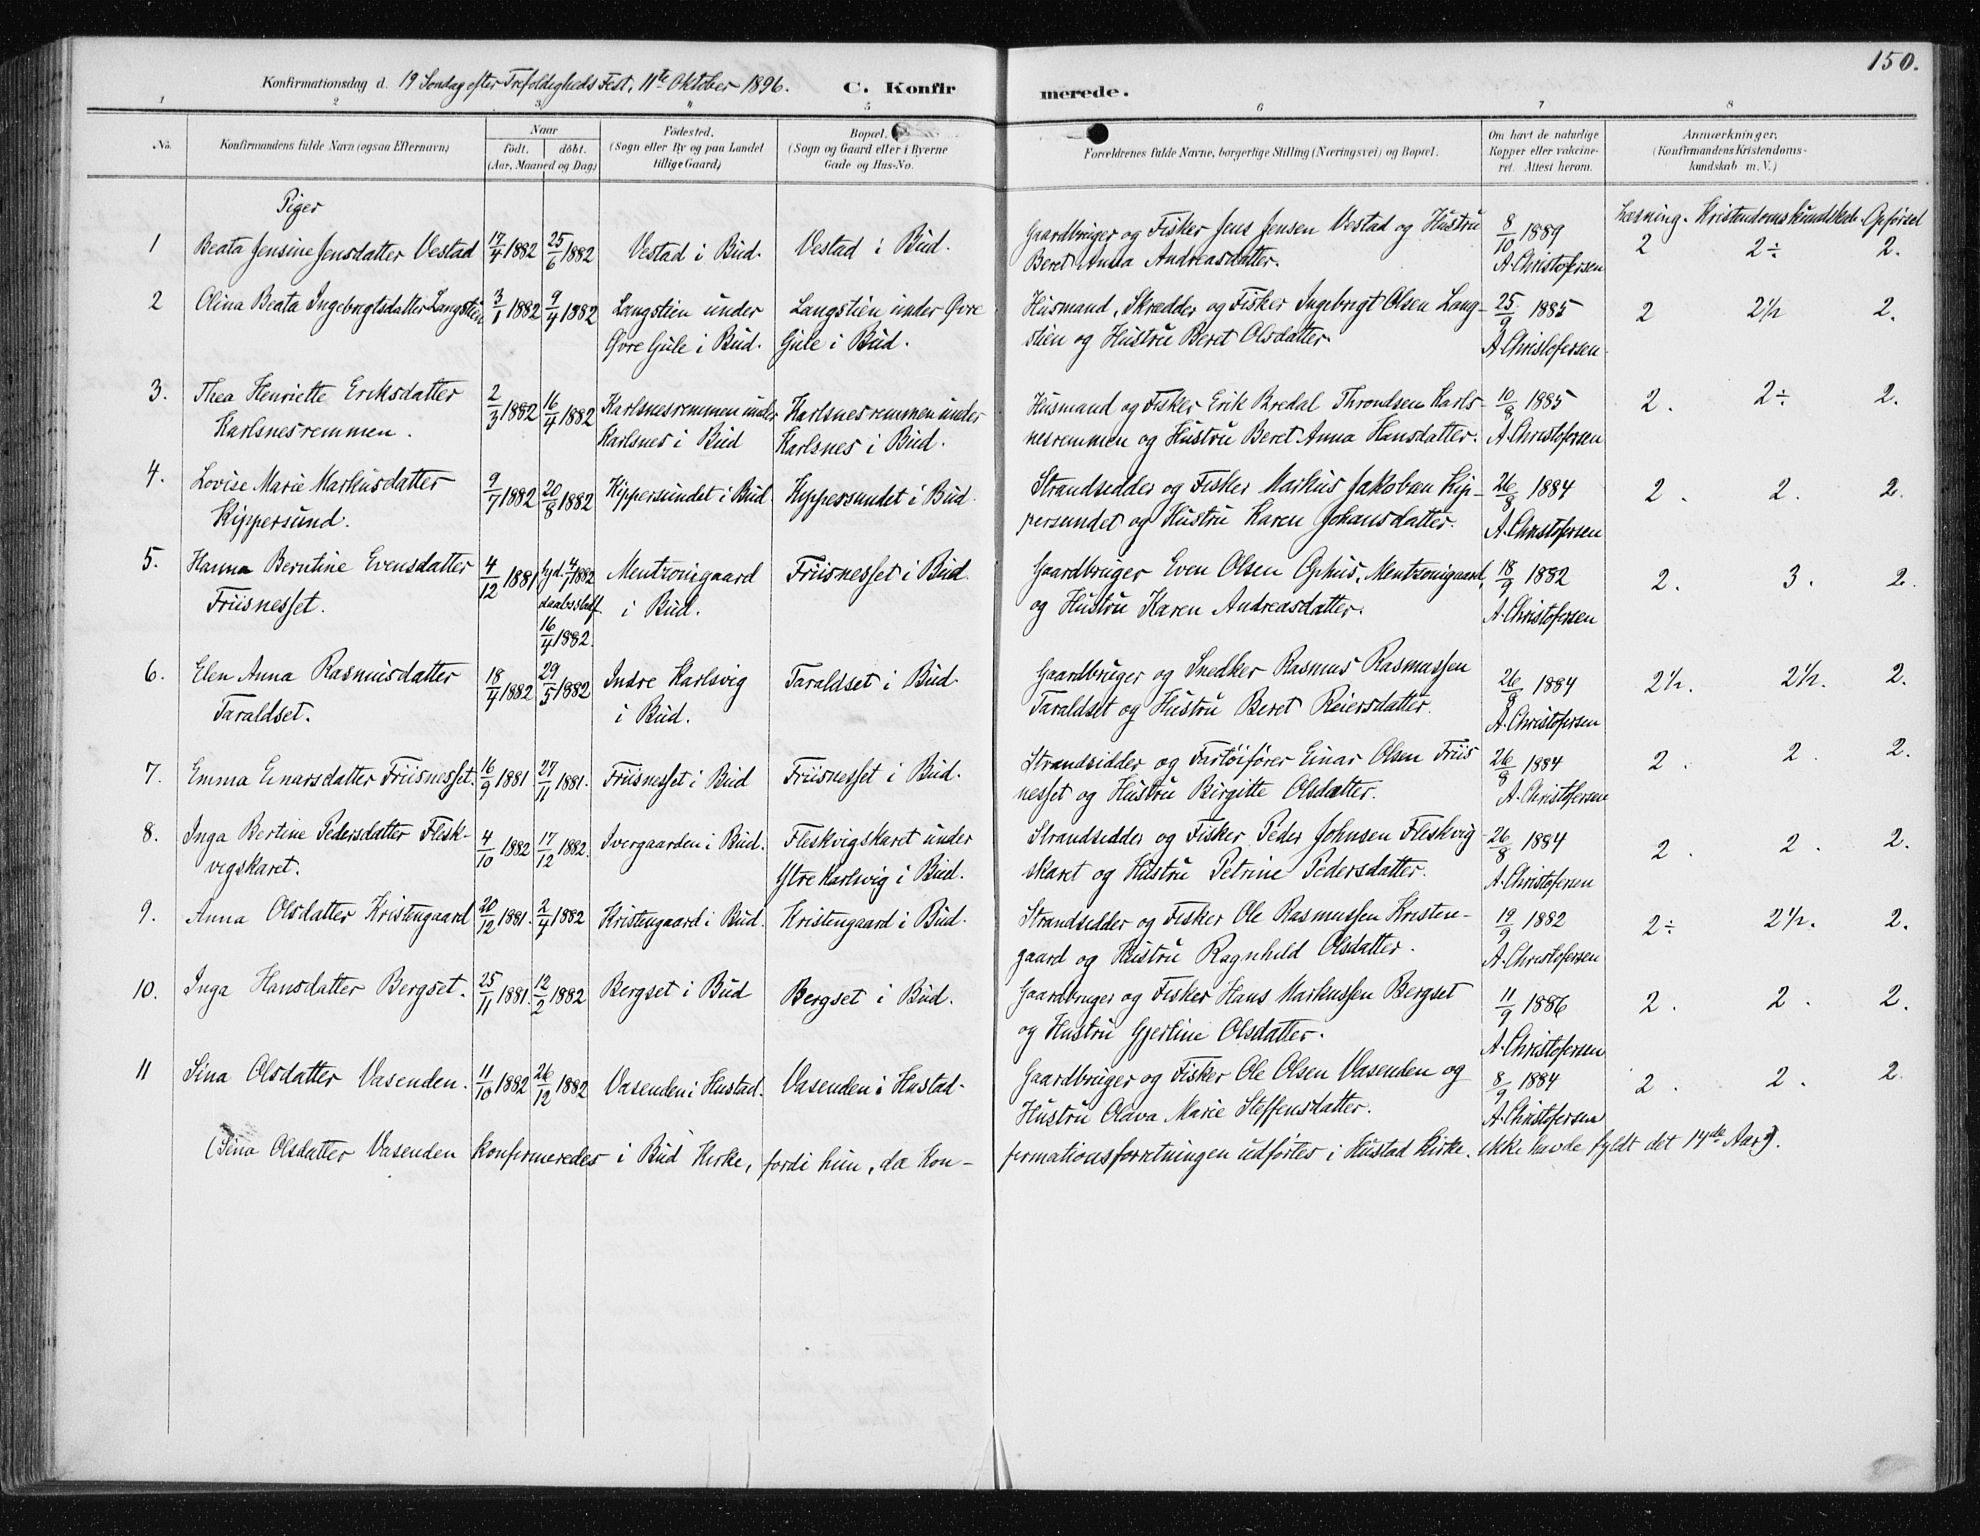 150.
Konfirmationsdag d. 19 Søndag efter Trefoldigheds Fest, 11te Oktober 1896. C. Konfirmerede.
1 2 3 4 5 6 7 8
No. Konfirmandens fulde Navn (ogsaa Efternavn) Naar født. døbt. (Aar, Maaned og Dag) Fødested. (Sogn eller By og paa Landet tillige Gaard) Bopæl. (Sogn og Gaard eller i Byerne Gade og Hus-No. Forældrenes fulde Navne, borgerlige Stilling (Næringsvei) og Bopæl. Om havt de naturlige Kopper eller vakcineret. Attest herom. Anmærkninger, (Konfirmandens Kristendomskundskab m. V.)
Piger
Læsning. Kristendomskundskab. Opførsel
1 Beata Jensine Jensdatter Vestad 17/4 1882 25/6 1882 Vestad i Bud. Vestad i Bud. Gaardbruger og Fisker Jens Jensen Vestad og Hustru 8/10 1889 2 2÷ 2.
Beret Anna Andreasdatter. A. Christofersen
2 Olina Beata Ingebrigtsdatter Langstien 3/1 1882 9/4 1882 Langstien under Langstien under Øvre Husmand, Skrædder og Fisker Ingebrigt Olsen Lang- 25/9 1885 2 2½ 2.
Øvre Gule i Bud. Gule i Bud. stien og Hustru Beret Olsdatter. A. Christofersen
3. Thea Henriette Eriksdatter 2/3 1882 16/4 1882 Karlsnesremmen under Karlsnesremmen under Husmand og Fisker Erik Bredal Throndsen Karls- 10/8 1885 2. 2÷ 2.
Karlsnesremmen. Karlsnes i Bud Karlsnes i Bud. nesremmen og Hustru Beret Anna Hansdatter. A. Christofersen
4. Lovise Marie Markusdatter 9/7 1882 20/8 1882 Kippersundet i Bud. Kippersundet i Bud. Strandsidder og Fisker Markus Jakobsen Kip- 26/8 1884 2. 2. 2.
Kippersund. persundet og Hustru Karen Johansdatter. A. Christofersen
5. Hanna Berntine Evensdatter 4/12 1881 hjd. 4/1 1882 Mentzonigaard Friisnesset i Bud. Gaardbruger Even Olsen Ophus, Mentzonigaard, 18/9 1882 2. 3. 2.
Friisnesset. daabsstadf. i Bud. og Hustru Karen Andreasdatter. A. Christofersen
16/4 1882.
6. Elen Anna Rasmusdatter 18/4 1882 29/5 1882 Indre Karlsvig Taraldset i Bud. Gaardbruger og Snedker Rasmus Rasmussen 26/8 1884 2½. 2½. 2.
Taraldset. i Bud. Taraldset og Hustru Beret Reiersdatter. A. Christofersen
7. Emma Einarsdatter Friisnesset. 16/9 1881 27/11 1881. Friisnesset i Bud Friisnesset i Bud. Strandsidder og Fartøifører Einar Olsen Friis 26/8 1884 2. 2. 2.
nesset og Hustru Birgitte Olsdatter. A. Christofersen
8. Inga Bertine Pedersdatter Flesk- 4/10 1882 17/12 1882. Ivergaarden i Bud. Fleskvigskaret under Strandsidder og Fisker Peder Johnsen Fleskvig 26/8 1884 2. 2. 2.
vegskaret. Ytre Karlsvig i Bud. skaret og Hustru Petrine Pedersdatter. A. Christofersen
9. Anna Olsdatter Kristengaard 20/12 1881. 2/4 1882 Kristengaard i Bud. Kristengaard i Bud. Strandsidder og Fisker Ole Rasmussen Kristen- 19/9 1882 2÷ 2½. 2.
gaard og Hustru Ragnhild Olsdatter. A. Christofersen
10. Inga Hansdatter Bergset. 25/11 1881. 12/2 1882 Bergset i Bud Bergset i Bud. Gaardbruger og Fisker Hans Markussen Bergset 11/9 1886 2. 2. 2.
og Hustru Gjertine Olsdatter. A. Christofersen
11 Sina Olsdatter Vasenden. 11/10 1882 26/12 1882 Vasenden i Hustad. Vasenden i Hustad. Gaardbruger og Fisker Ole Olsen Vasenden og 8/9 1884 2. 2. 2.
Hustru Olava Marie Steffensdatter. A. Christofersen
(Sina Olsdatter Vasenden konfirmeredes i Bud Kirke, fordi hun, da Kon- firmationsforretningen udførtes i Hustad Kirke, ikke havde fyldt det 14de Aar).